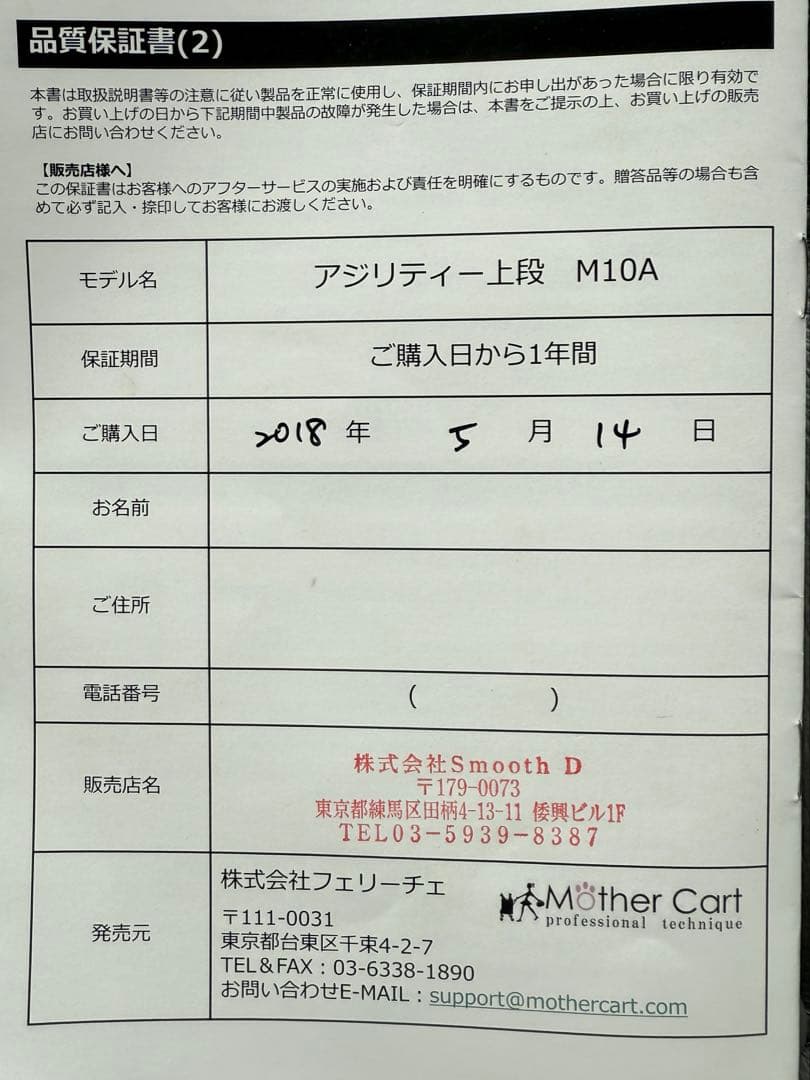 品質保証書(2)
本書は取扱説明書等の注意に従い製品を正常に使用し、保証期間内にお申し出があった場合に限り有効で
す。お買い上げの日から下記期間中製品の故障が発生した場合は、本書をご提示の上、お買い上げの販売
店にお問い合わせください。
【販売店様へ】
この保証書はお客様へのアフターサービスの実施および責任を明確にするものです。贈答品等の場合も含
めて必ず記入・捺印してお客様にお渡しください。
モデル名 アジリティー上段 M10A
保証期間 ご購入日から1年間
ご購入日 2018 年 5 月 14 日
お名前
ご住所
電話番号 ( )
販売店名
株式会社Smooth D
〒179-0073
東京都練馬区田柄4-13-11 倭興ビル1F
TEL03-5939-8387
発売元
株式会社フェリーチェ
〒111-0031
東京都台東区千束4-2-7
TEL&FAX：03-6338-1890
お問い合わせE-MAIL：support@mothercart.com
Mother Cart
professional technique